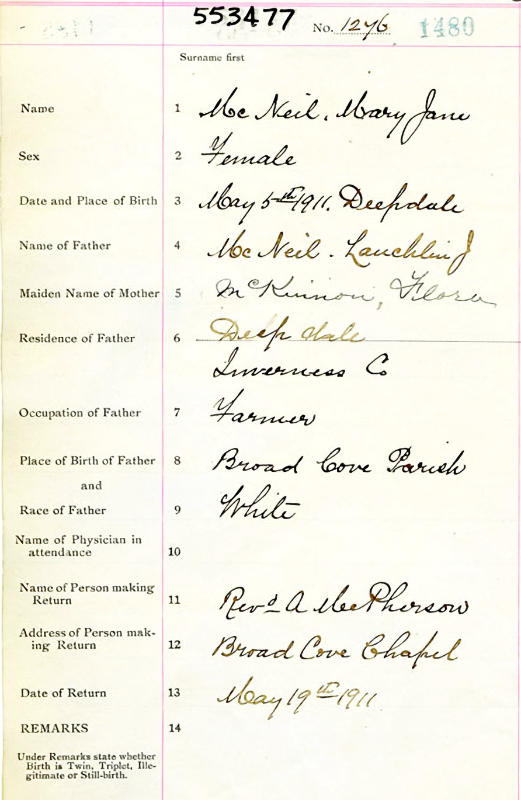 553477
No. 1276 1480
Surname first
Name 1 Mc Neil, Mary Jane
Sex 2 Female
Date and Place of Birth 3 May 5th 1911. Deepdale
Name of Father 4 Mc Neil. Lauchlin J
Maiden Name of Mother 5 McKinnon, Flora
Residence of Father 6 Deep dale
Inverness Co
Occupation of Father 7 Farmer
Place of Birth of Father 8 Broad Cove Parish
and
Race of Father 9 White
Name of Physician in
attendance 10
Name of Person making
Return 11 Revd A MacPherson
Address of Person mak-
ing Return 12 Broad Cove Chapel
Date of Return 13 May 19th 1911
REMARKS 14
Under Remarks state whether
Birth is Twin, Triplet, Ille-
gitimate or Still-birth.